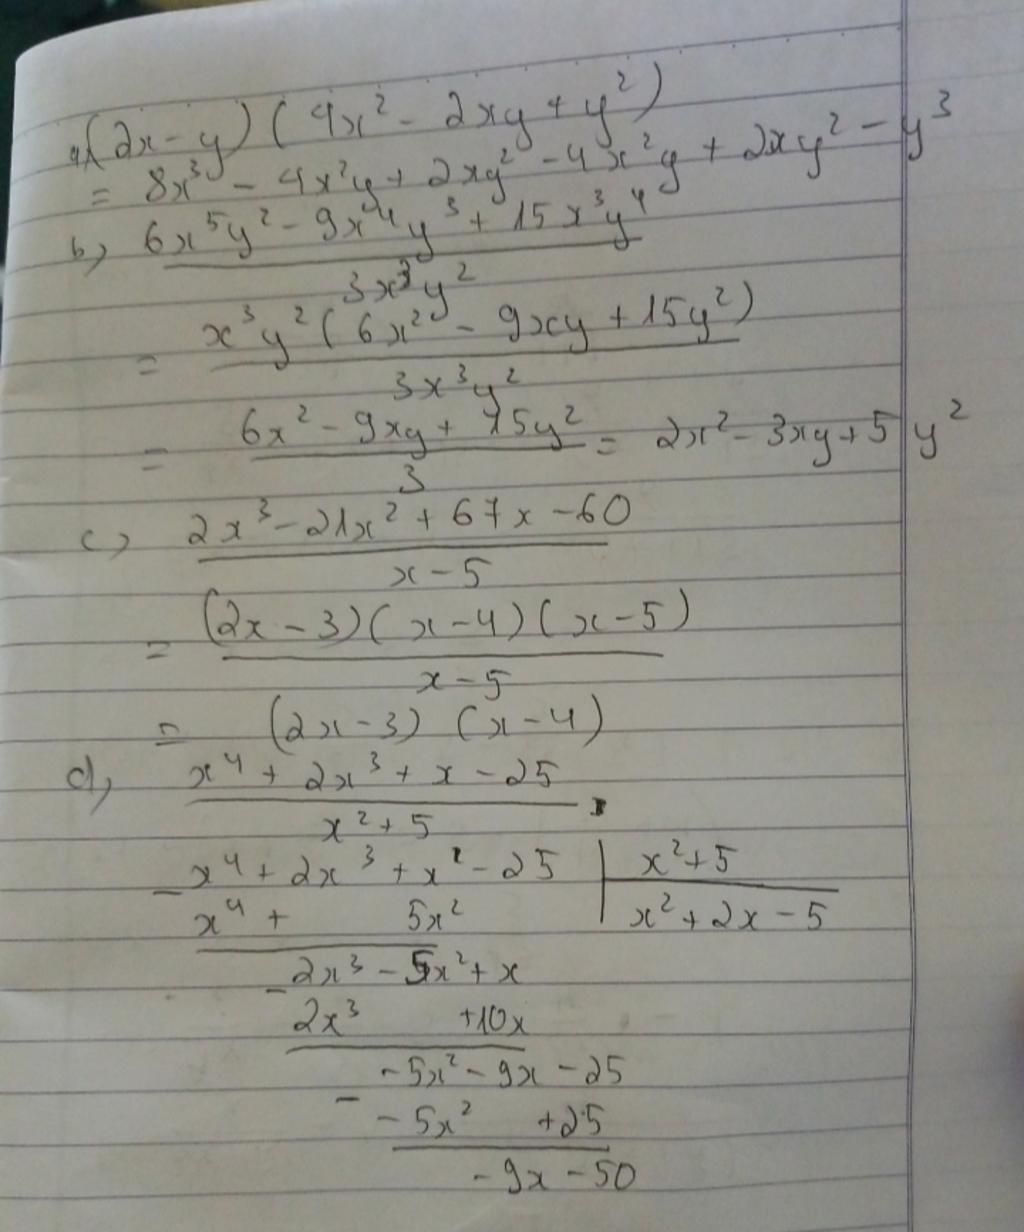 a, (2x - y) (4x² - 2xy + y²)
= 8x³ - 4x²y + 2xy² - 4x²y + 2xy² - y³
b, 6x⁵y² - 9x⁴y³ + 15x³y⁴
3x³y²
= x³y² (6x² - 9xy + 15y²)
3x³y²
= 6x² - 9xy + 15y² = 2x² - 3xy + 5y²
3
c, 2x³ - 21x² + 67x - 60
x - 5
= (2x - 3)(x - 4)(x - 5)
x - 5
= (2x - 3) (x - 4)
d, x⁴ + 2x³ + x - 25
x² + 5
- x⁴ + 2x³ + x - 25 | x² + 5
x⁴ + 5x² | x² + 2x - 5
- 2x³ - 5x² + x
2x³ + 10x
- 5x² - 9x - 25
- - 5x² + 25
- 9x - 50